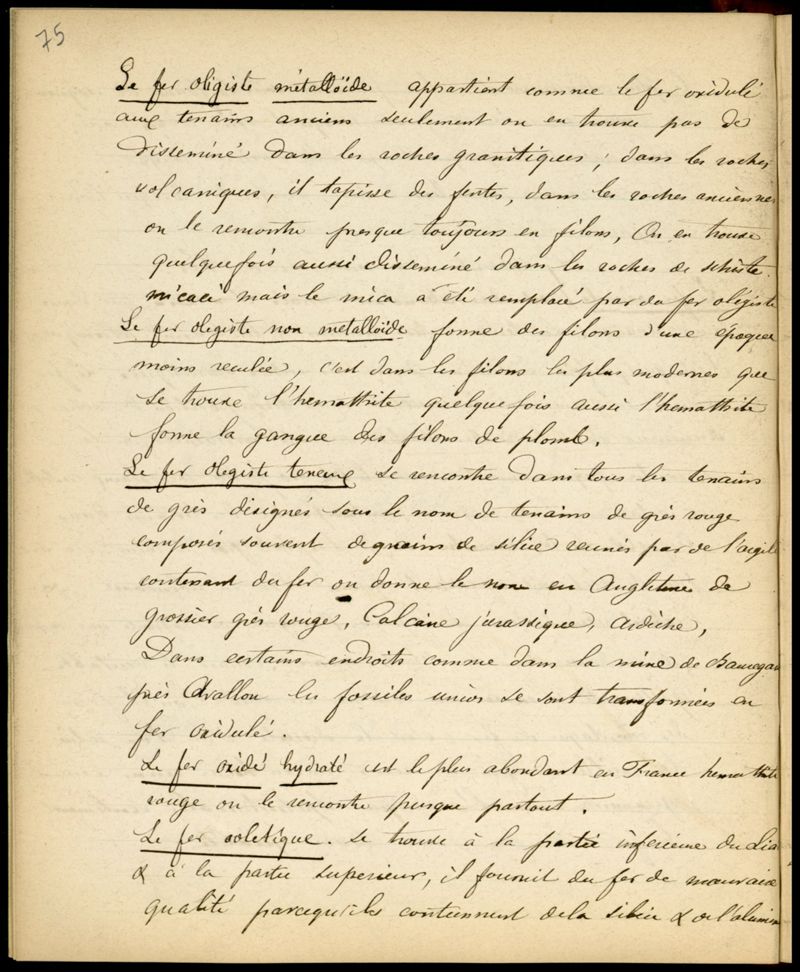 75
Le fer oligiste métalloïde appartient comme le fer oxidulé
aux terrains anciens seulement on en trouve pas de
disseminé dans les roches granitiques ; dans les roches
volcaniques, il tapisse des fentes, dans les roches anciennes
on le rencontre presque toujours en filons, On en trouve
quelquefois aussi disseminé dans les roches de schiste
micacé mais le mica a été remplacé par du fer oligiste
Le fer oligiste non metalloïde forme des filons d'une époque
moins reculée, c'est dans les filons les plus modernes que
se trouve l'hematthite quelquefois aussi l'hematthite
forme la gangue des filons de plomb.
Le fer olegiste terreux se rencontre dans tous les terrains
de grès désignés sous le nom de terrains de grès rouge
composés souvent de grains de silice reunis par de l'argile
contenant du fer on donne le nom en Angleterre de
grossier grès rouge, Calcaire jurassique, ardèche,
Dans certains endroits comme dans la mine de
près Avallon les fossiles se sont transformées en
fer oxidulé.
Le fer oxidé hydraté est le plus abondant en France hematthite
rouge on le rencontre presque partout.
Le fer oolitique. se trouve à la partie inferieure du Lias
& à la partie superieur, il fournit du fer de mauvaise
qualité parcequ'ils contiennent de la silice & de l'alumine